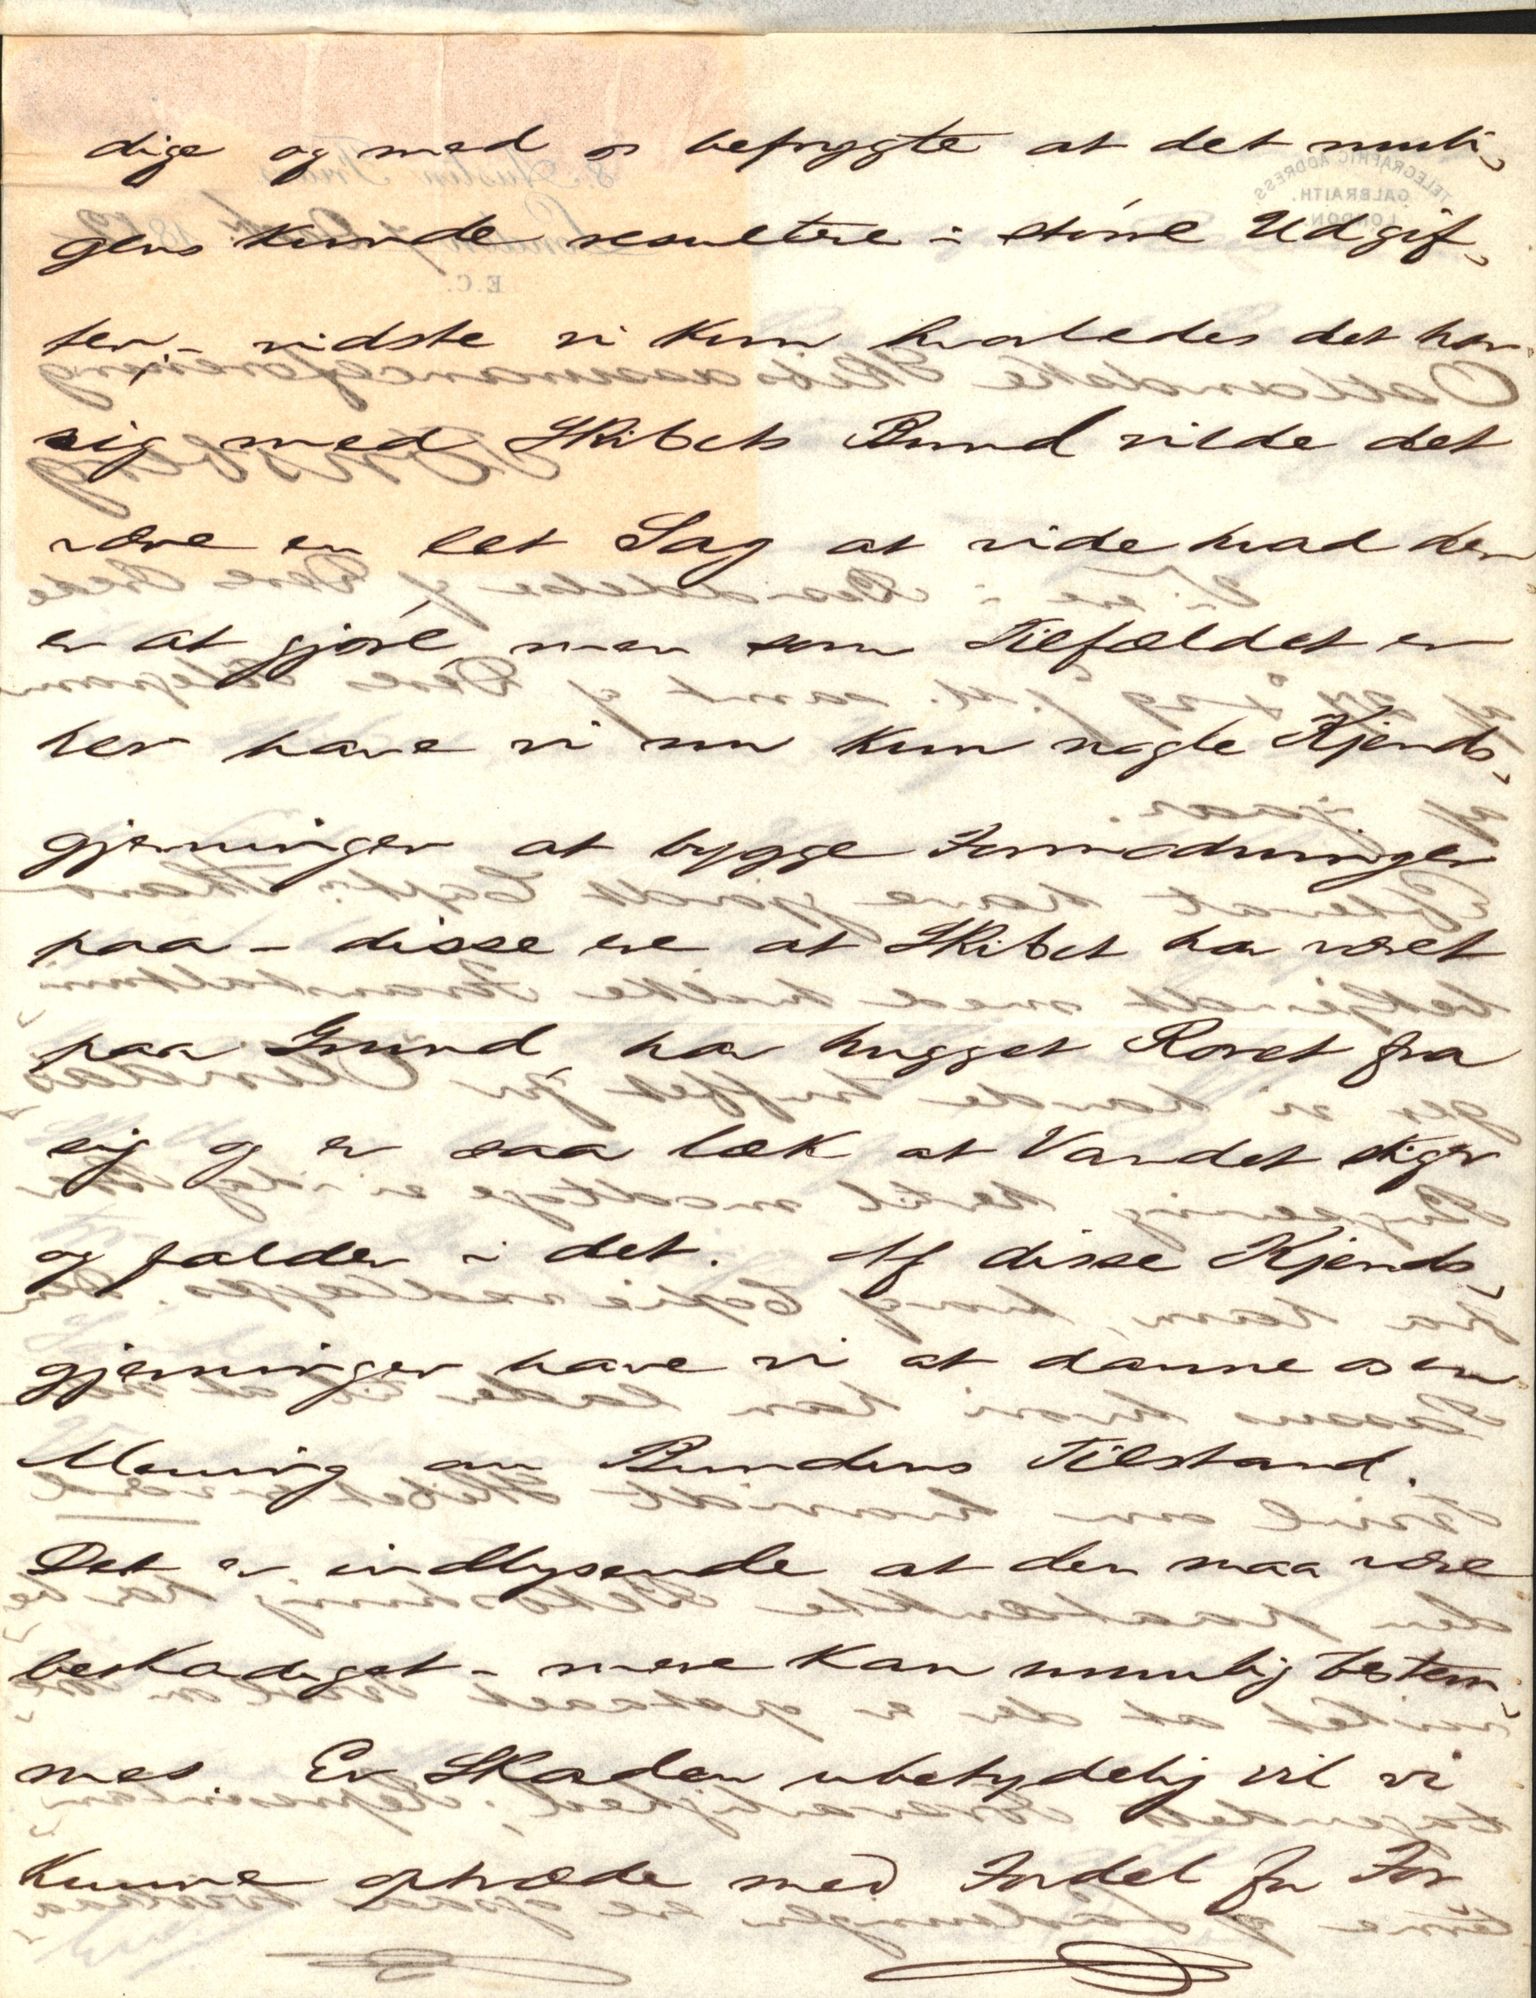 dige og med os befrygte at det muli-
gens kunde resultere i større Udgif-
ter – vidste vi kun hvorledes det har
sig med Skibets Bund vilde det
være en let Sag at vide hvad der
er at gjøre, men som Tilfældet er
her have vi nu kun nogle Kjends-
gjerninger at bygge Formodninger
paa – disse ere at Skibet har været
paa Grund, har hugget Roret fra
sig og er saa læk at Vandet stiger
og falder i det. Af disse Kjends-
gjerninger have vi at danne os en
Mening om Bundens Tilstand.
Det er indlysende at den maa være
beskadiget – mere kan umulig bestem-
mes. Er Skaden ubetydelig vil vi
kunne optræde med Fordel for For